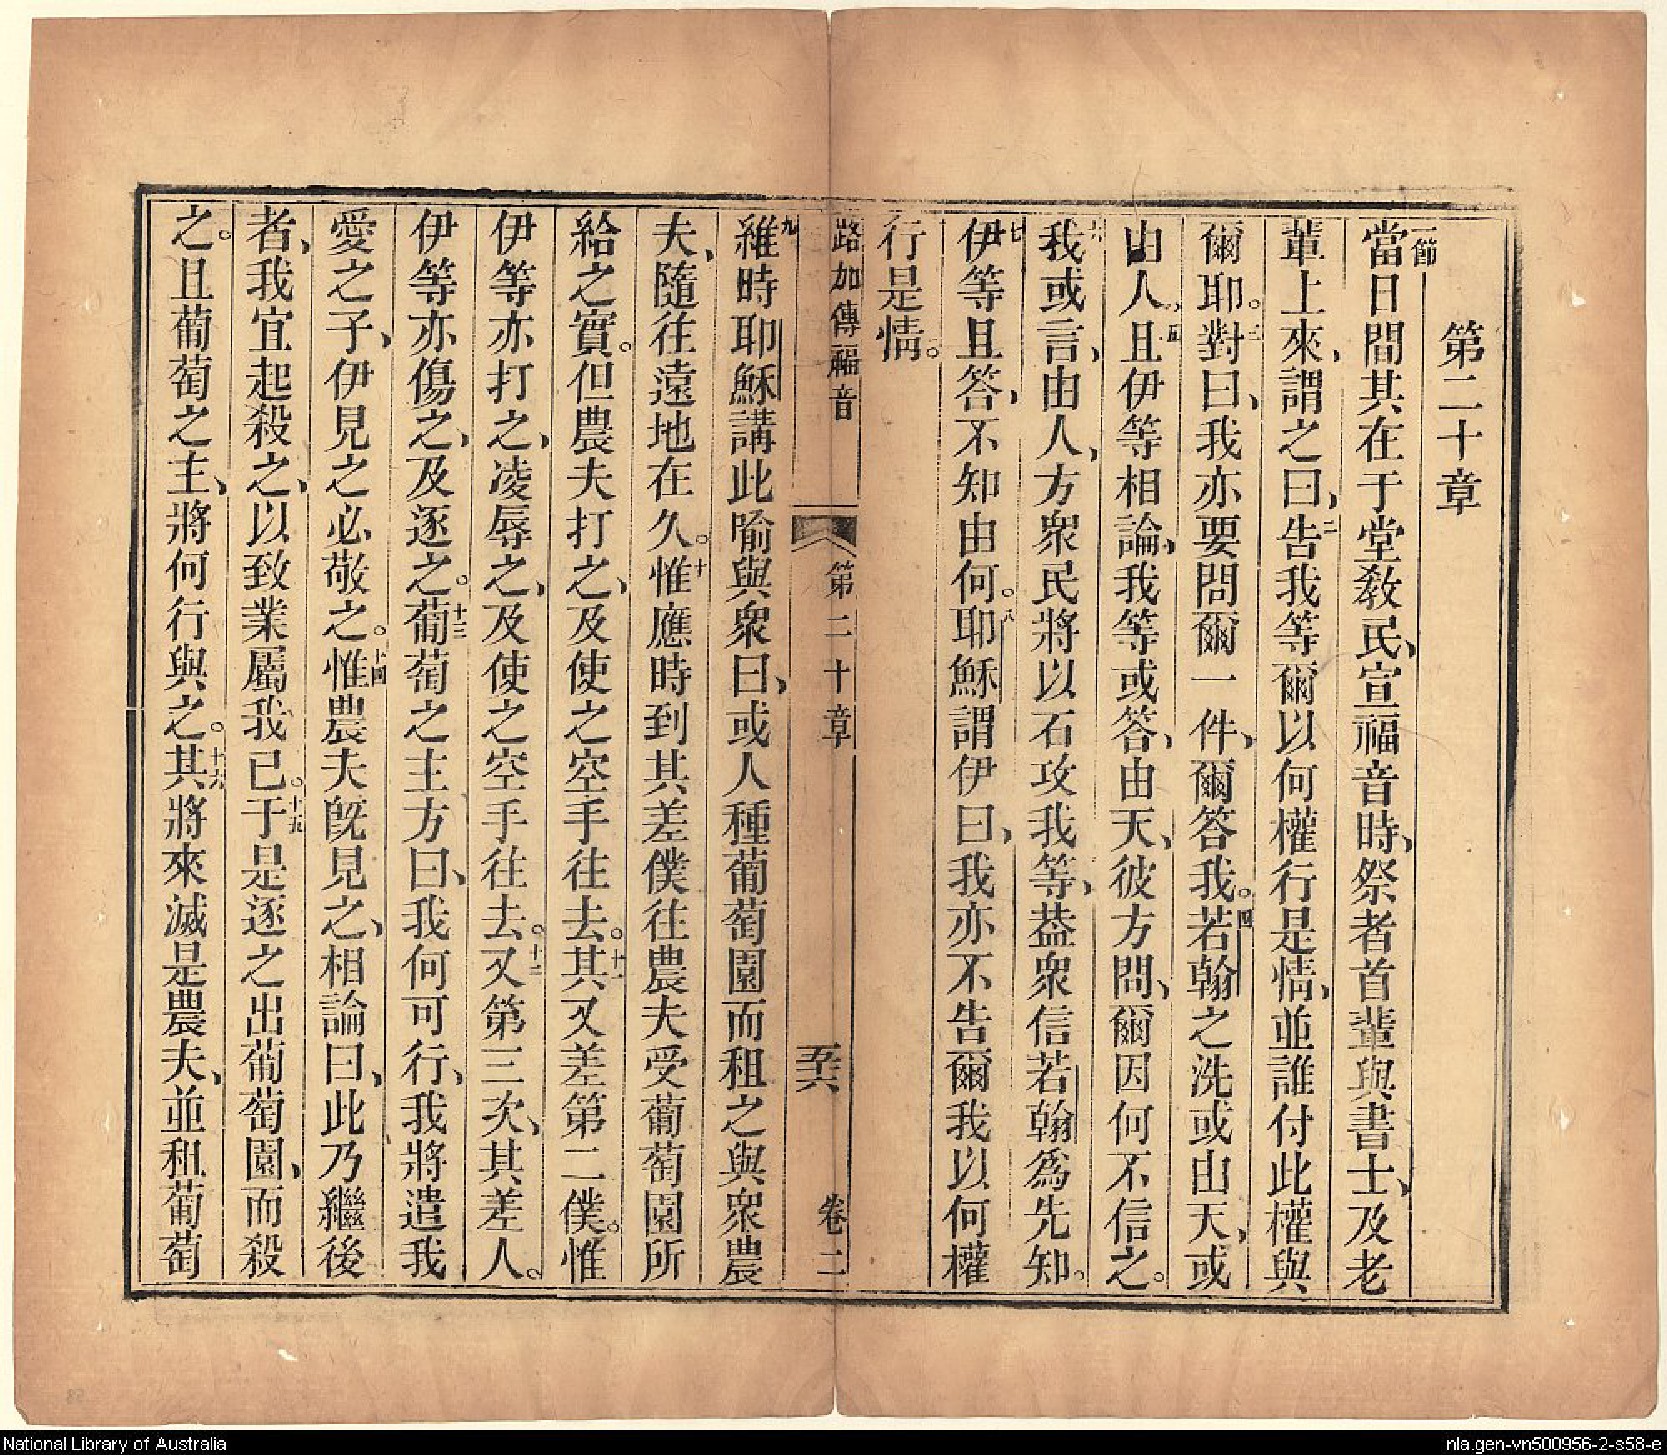 第二十章
一節當日間其在于堂敎民、宣福音時、祭者首輩與書士、及老
輩上來、謂之曰、二告我等爾以何權行是情、並誰付此權與
爾耶。三對曰、我亦要問爾一件、爾答我。四若翰之洗或由天、或
由人、五且伊等相論、我等或答、由天、彼方問、爾因何不信之。
六我或言、由人、方衆民將以石攻我等、葢衆信若翰爲先知。
七伊等且答、不知由何。八耶穌謂伊曰、我亦不告爾我以何權
行是情。
路加傳福音 第二十章 五十六 卷二
九維時耶穌講此喻與衆曰、或人種葡萄園而租之與衆農
夫、隨往遠地在久。十惟應時到其差僕往農夫受葡萄園所
給之實。但農夫打之、及使之空手往去。十一其又差第二僕。惟
伊等亦打之、凌辱之、及使之空手往去。十二又第三次、其差人。
伊等亦傷之、及逐之。十三葡萄之主方曰、我何可行、我將遣我
愛之子、伊見之必敬之。十四惟農夫旣見之、相論曰、此乃繼後
者、我宜起殺之、以致業屬我已。十五于是逐之出葡萄園、而殺
之。且葡萄之主、將何行與之。十六其將來滅是農夫、並租葡萄
National Library of Australia
nla.gen-vn500956-2-s58-e